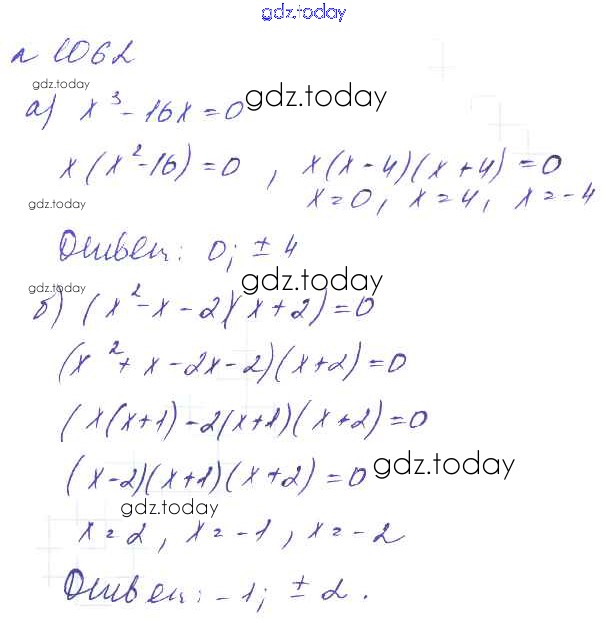 gdz.today
№ 1062
gdz.today
а) x³ - 16x = 0 gdz.today
x(x² - 16) = 0 , x(x - 4)(x + 4) = 0
gdz.today x = 0, x = 4, x = -4
Ответ: 0; ± 4
gdz.today gdz.today
б) (x² - x - 2)(x + 2) = 0
(x² + x - 2x - 2)(x + 2) = 0
(x(x+1) - 2(x+1)(x + 2) = 0
(x - 2)(x + 1)(x + 2) = 0 gdz.today
gdz.today
x = 2, x = -1, x = -2
Ответ: -1; ± 2.